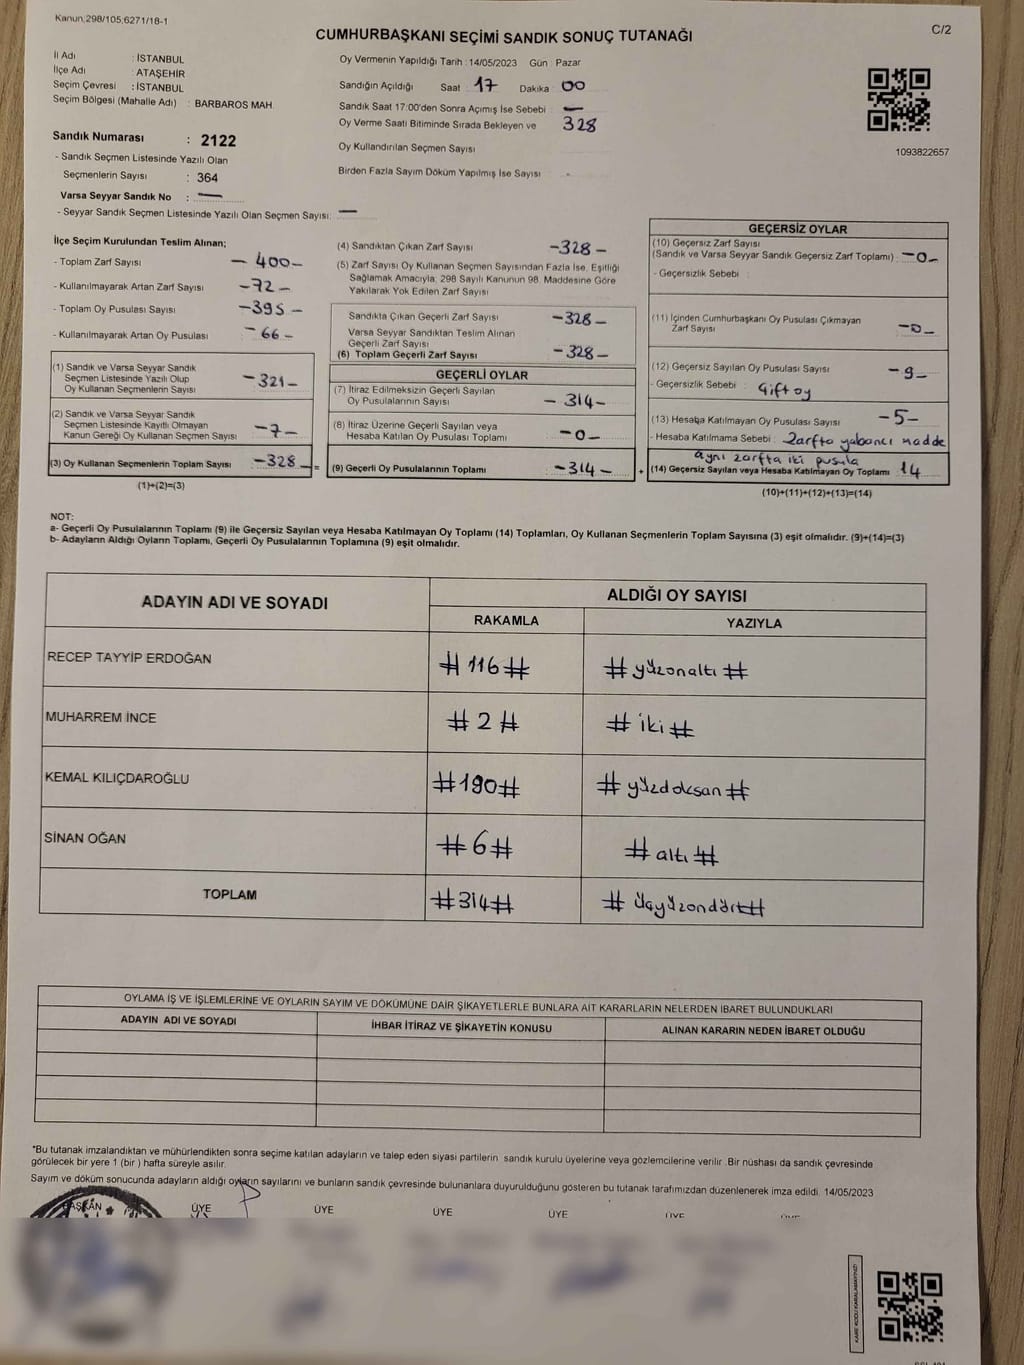 Kanun,298/105,6271/18-1
C/2
CUMHURBAŞKANI SEÇİMİ SANDIK SONUÇ TUTANAĞI
İl Adı : İSTANBUL
İlçe Adı : ATAŞEHİR
Seçim Çevresi : İSTANBUL
Seçim Bölgesi (Mahalle Adı) : BARBAROS MAH.
Sandık Numarası : 2122
- Sandık Seçmen Listesinde Yazılı Olan
Seçmenlerin Sayısı : 364
Varsa Seyyar Sandık No : —
- Seyyar Sandık Seçmen Listesinde Yazılı Olan Seçmen Sayısı: —
Oy Vermenin Yapıldığı Tarih : 14/05/2023 Gün : Pazar
Sandığın Açıldığı Saat 17 Dakika 00
Sandık Saat 17:00'den Sonra Açımış İse Sebebi : —
Oy Verme Saati Bitiminde Sırada Bekleyen ve 328
Oy Kullandırılan Seçmen Sayısı
Birden Fazla Sayım Döküm Yapılmış İse Sayısı :
1093822657
İlçe Seçim Kurulundan Teslim Alınan;
- Toplam Zarf Sayısı — 400 —
- Kullanılmayarak Artan Zarf Sayısı — 72 —
- Toplam Oy Pusulası Sayısı — 395 —
- Kullanılmayarak Artan Oy Pusulası — 66 —
(1) Sandık ve Varsa Seyyar Sandık
Seçmen Listesinde Yazılı Olup
Oy Kullanan Seçmenlerin Sayısı — 321 —
(2) Sandık ve Varsa Seyyar Sandık
Seçmen Listesinde Kayıtlı Olmayan
Kanun Gereği Oy Kullanan Seçmen Sayısı — 7 —
(3) Oy Kullanan Seçmenlerin Toplam Sayısı — 328 — =
(1)+(2)=(3)
(4) Sandıktan Çıkan Zarf Sayısı — 328 —
(5) Zarf Sayısı Oy Kullanan Seçmen Sayısından Fazla İse, Eşitliği
Sağlamak Amacıyla, 298 Sayılı Kanunun 98. Maddesine Göre
Yakılarak Yok Edilen Zarf Sayısı
Sandıkta Çıkan Geçerli Zarf Sayısı — 328 —
Varsa Seyyar Sandıktan Teslim Alınan
Geçerli Zarf Sayısı
(6) Toplam Geçerli Zarf Sayısı — 328 —
GEÇERLİ OYLAR
(7) İtiraz Edilmeksizin Geçerli Sayılan
Oy Pusulalarının Sayısı — 314 —
(8) İtiraz Üzerine Geçerli Sayılan veya
Hesaba Katılan Oy Pusulası Toplamı — 0 —
(9) Geçerli Oy Pusulalarının Toplamı — 314 — +
GEÇERSİZ OYLAR
(10) Geçersiz Zarf Sayısı
(Sandık ve Varsa Seyyar Sandık Geçersiz Zarf Toplamı) : — 0 —
- Geçersizlik Sebebi :
(11) İçinden Cumhurbaşkanı Oy Pusulası Çıkmayan
Zarf Sayısı — 0 —
(12) Geçersiz Sayılan Oy Pusulası Sayısı — 9 —
- Geçersizlik Sebebi : Çift oy
(13) Hesaba Katılmayan Oy Pusulası Sayısı — 5 —
- Hesaba Katılmama Sebebi : Zarfta yabancı madde
aynı zarfta iki pusula
(14) Geçersiz Sayılan veya Hesaba Katılmayan Oy Toplamı 14
(10)+(11)+(12)+(13)=(14)
NOT:
a- Geçerli Oy Pusulalarının Toplamı (9) ile Geçersiz Sayılan veya Hesaba Katılmayan Oy Toplamı (14) Toplamları, Oy Kullanan Seçmenlerin Toplam Sayısına (3) eşit olmalıdır. (9)+(14)=(3)
b- Adayların Aldığı Oyların Toplamı, Geçerli Oy Pusulalarının Toplamına (9) eşit olmalıdır.
ADAYIN ADI VE SOYADI
ALDIĞI OY SAYISI
RAKAMLA YAZIYLA
RECEP TAYYİP ERDOĞAN # 116 # # yüzonaltı #
MUHARREM İNCE # 2 # # iki #
KEMAL KILIÇDAROĞLU # 190 # # yüzdoksan #
SİNAN OĞAN # 6 # # altı #
TOPLAM # 314 # # üçyüzondört #
OYLAMA İŞ VE İŞLEMLERİNE VE OYLARIN SAYIM VE DÖKÜMÜNE DAİR ŞİKAYETLERLE BUNLARA AİT KARARLARIN NELERDEN İBARET BULUNDUKLARI
ADAYIN ADI VE SOYADI İHBAR İTİRAZ VE ŞİKAYETİN KONUSU ALINAN KARARIN NEDEN İBARET OLDUĞU
*Bu tutanak imzalandıktan ve mühürlendikten sonra seçime katılan adayların ve talep eden siyasi partilerin sandık kurulu üyelerine veya gözlemcilerine verilir. Bir nüshası da sandık çevresinde
görülecek bir yere 1 (bir) hafta süreyle asılır.
Sayım ve döküm sonucunda adayların aldığı oyların sayılarını ve bunların sandık çevresinde bulunanlara duyurulduğunu gösteren bu tutanak tarafımızdan düzenlenerek imza edildi. 14/05/2023
BAŞKAN ÜYE ÜYE ÜYE ÜYE ÜYE ÜYE